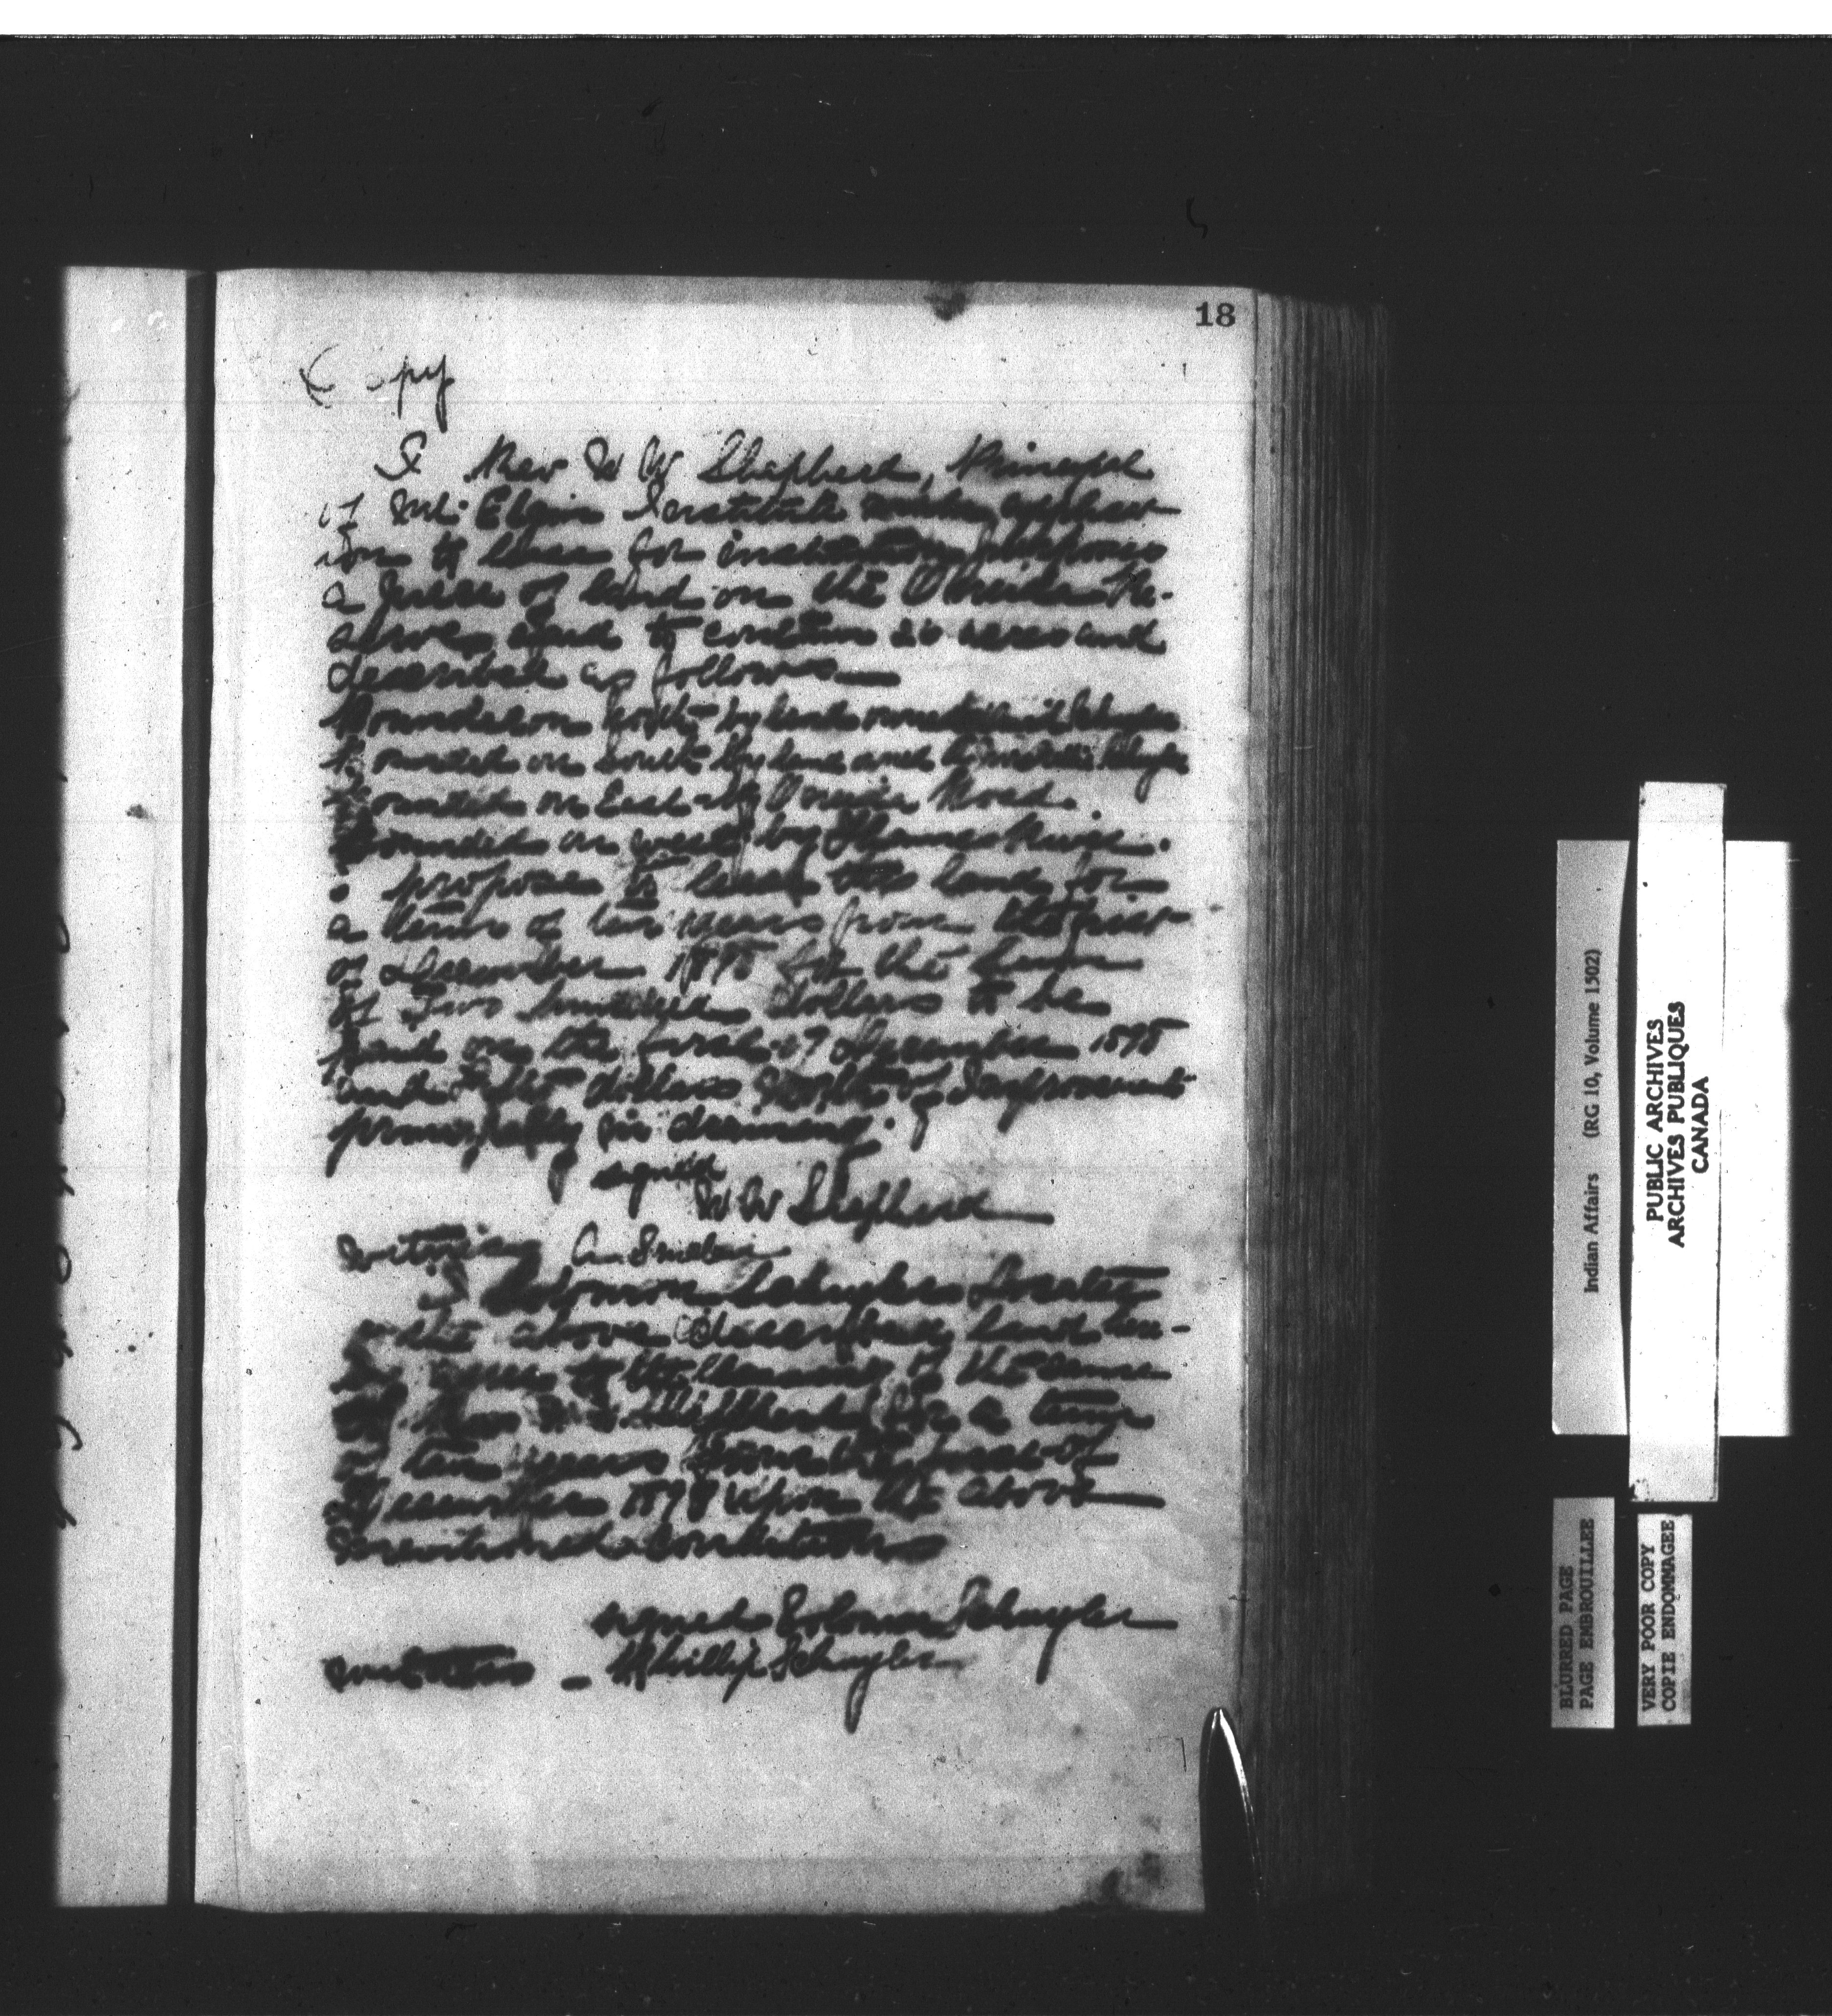 18
Copy
I Rev W W Shepherd, Principal
of Mt. Elgin Institute make applicat
ion to lease for institution purposes
a piece of land on the Oneida Re-
serve, said to contain acres and
described as follows
Bounded on north by land owned Schuyler
Bounded on South by land Schuyler
Bounded on East by Oneida Road.
Bounded on west by Thames River.
I propose to lease the land for
a term of ten years from the first
of December 1898 for the sum
of Two hundred dollars to be
paid on the first of December 1898
and dollars worth of Improvement
principally in draining.
signed
W W Shepherd
witness A. Sinclair
I Solomon Schuyler Locatee
of the above described land
agree to the leasing of the same
to Rev W W Shepherd for a term
of ten years from the first of
December 1898 upon the above
mentioned conditions
signed Solomon Schuyler
witness - Phillip Schuyler
Indian Affairs (RG 10, Volume 1502)
PUBLIC ARCHIVES
ARCHIVES PUBLIQUES
CANADA
BLURRED PAGE
PAGE EMBROUILLEE
VERY POOR COPY
COPIE ENDOMMAGEE